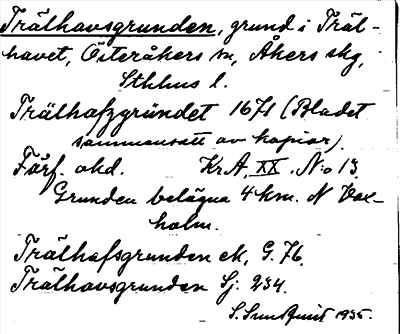 Trälhavsgrunden, grund i Träl-
havet, Österåkers sn, Åkers skg,
Sthlms l.
Trälhafzgründet 1671 (Bladet
sammansatt av kopior).
Förf. okd. KrA, XX. No 13.
Grunden belägna 4 km. N Vax-
holm.
Trälhafsgrunden ek, G. 76.
Trälhavsgrunden Sj. 234.
S. Sundquist 1935.